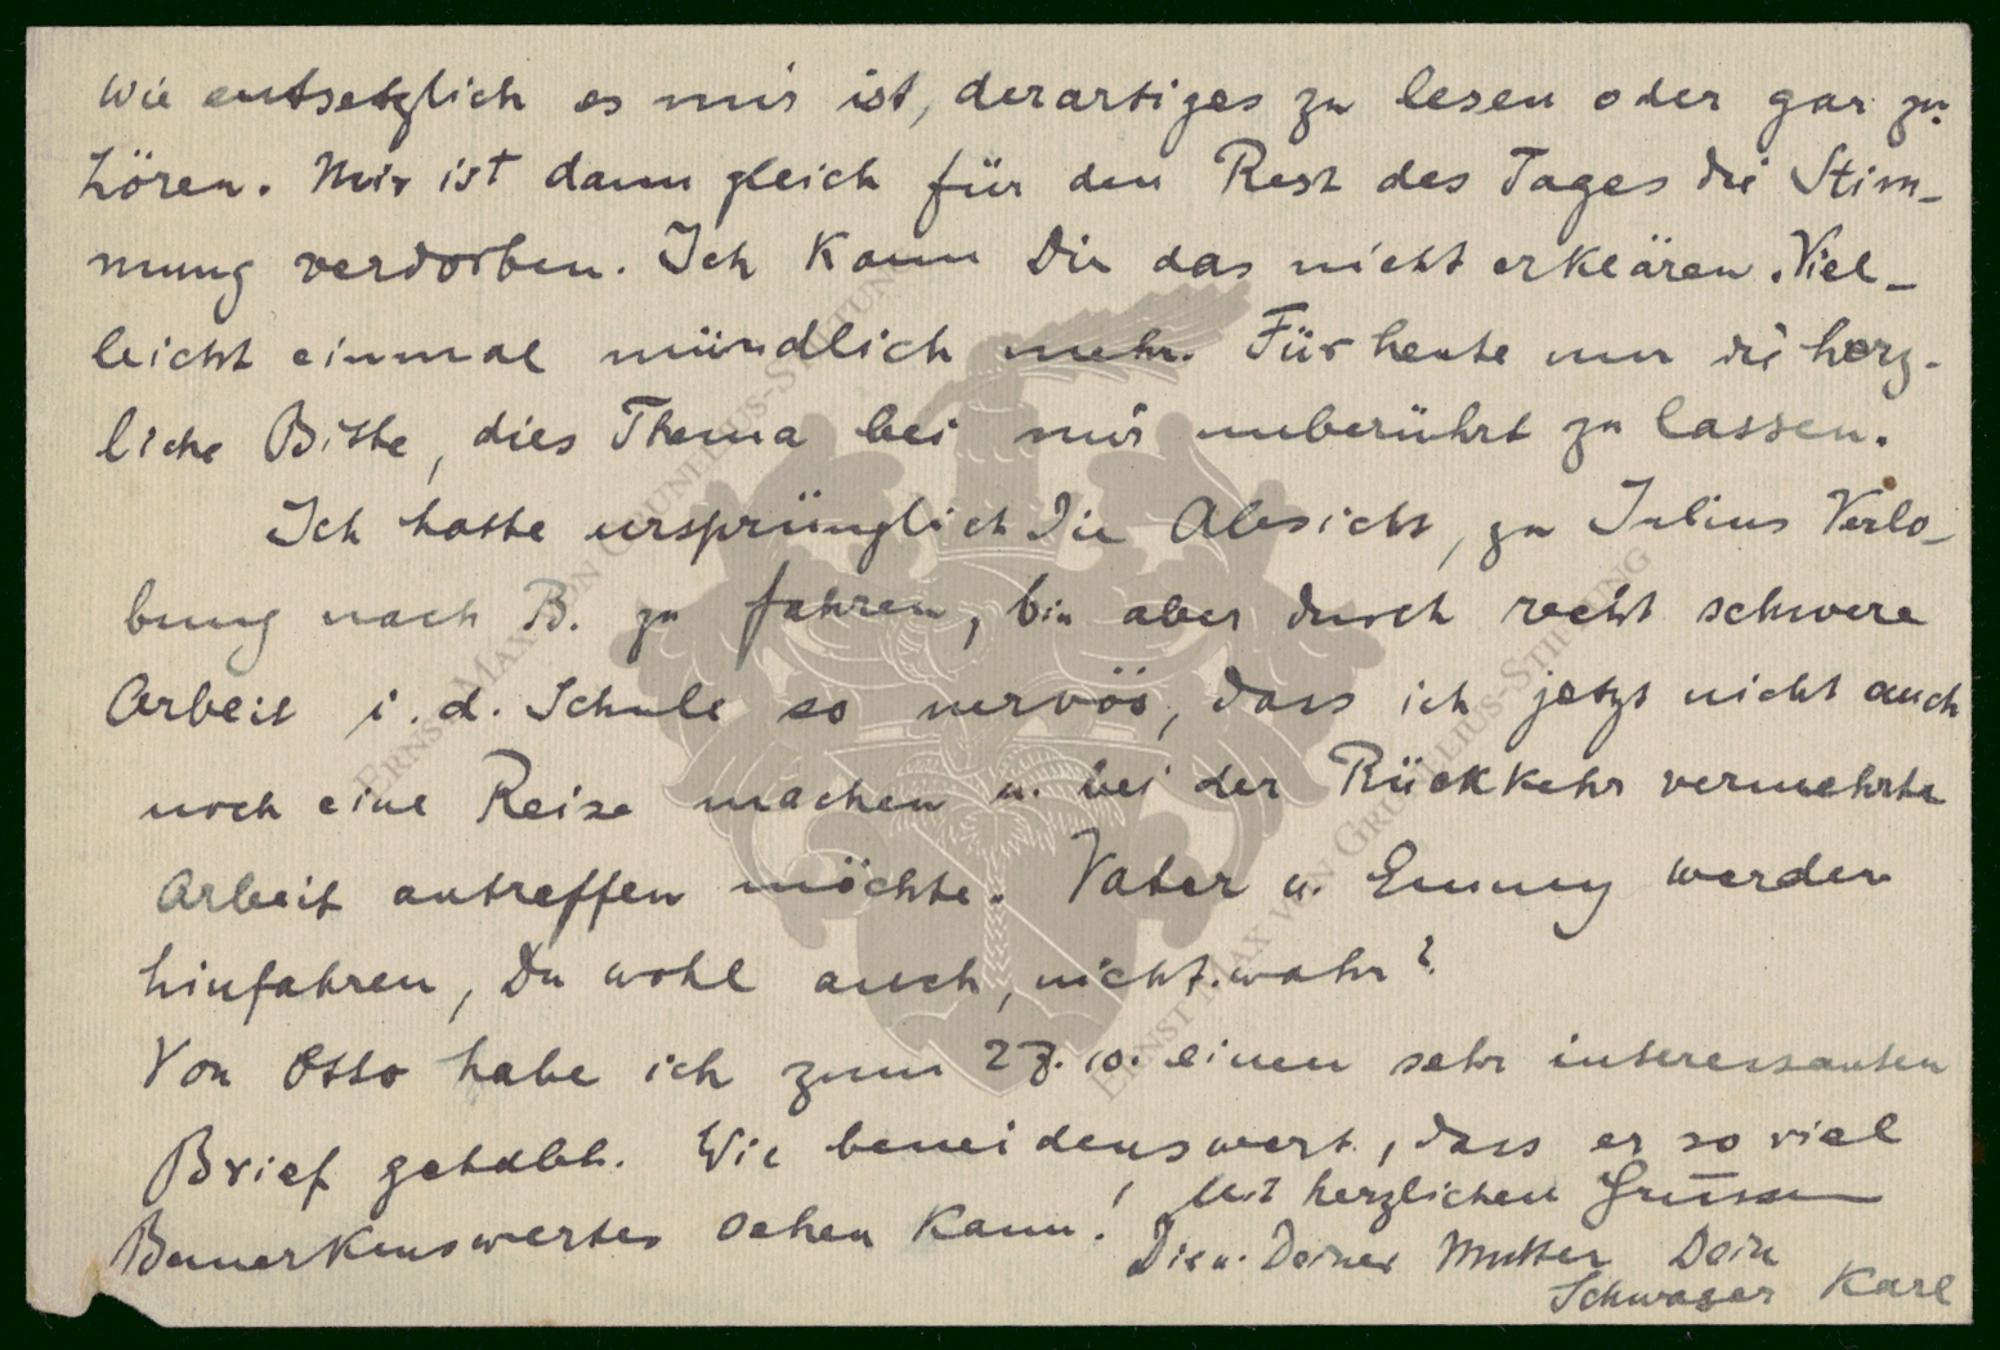 wie entsetzlich es mir ist, derartiges zu lesen oder gar zu
hören. Mir ist dann gleich für den Rest des Tages die Stim-
mung verdorben. Ich kann Dir das nicht erklären. Viel-
leicht einmal mündlich mehr. Für heute nur die herz-
liche Bitte, dies Thema bei mir unberührt zu lassen.
Ich hatte ursprünglich die Absicht, zu Julius Verlo-
bung nach B. zu fahren, bin aber durch recht schwere
Arbeit i. d. Schule so nervös, dass ich jetzt nicht auch
noch eine Reise machen u. bei der Rückkehr vermehrte
Arbeit antreffen möchte. Vater u. Emmy werden
hinfahren, Du wohl auch, nicht wahr?
Von Otto habe ich zum 27. 10. einen sehr interessanten
Brief gehabt. Wie beneidenswert, dass er so viel
Bemerkenswertes sehen kann! Mit herzlichen Grüssen
Dir u. Deiner Mutter Dein
Schwager Karl
ERNST MAX VON GRUNELIUS-STIFTUNG
ERNST MAX VON GRUNELIUS-STIFTUNG